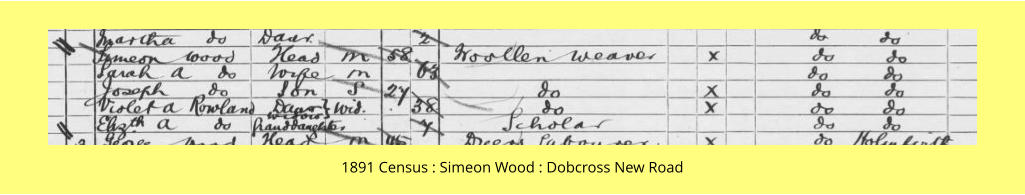 Martha do Daur. 2 do do
Simeon Wood Head m 58 Woollen weaver x do do
Sarah A do Wife m 63 do do
Joseph do Son S 27 do x do do
Violet a Rowland Daur Wid. 38 do x do do
Elizth A do Widows Granddaughter 7 Scholar do do
Head m x do Holmfirth
1891 Census : Simeon Wood : Dobcross New Road